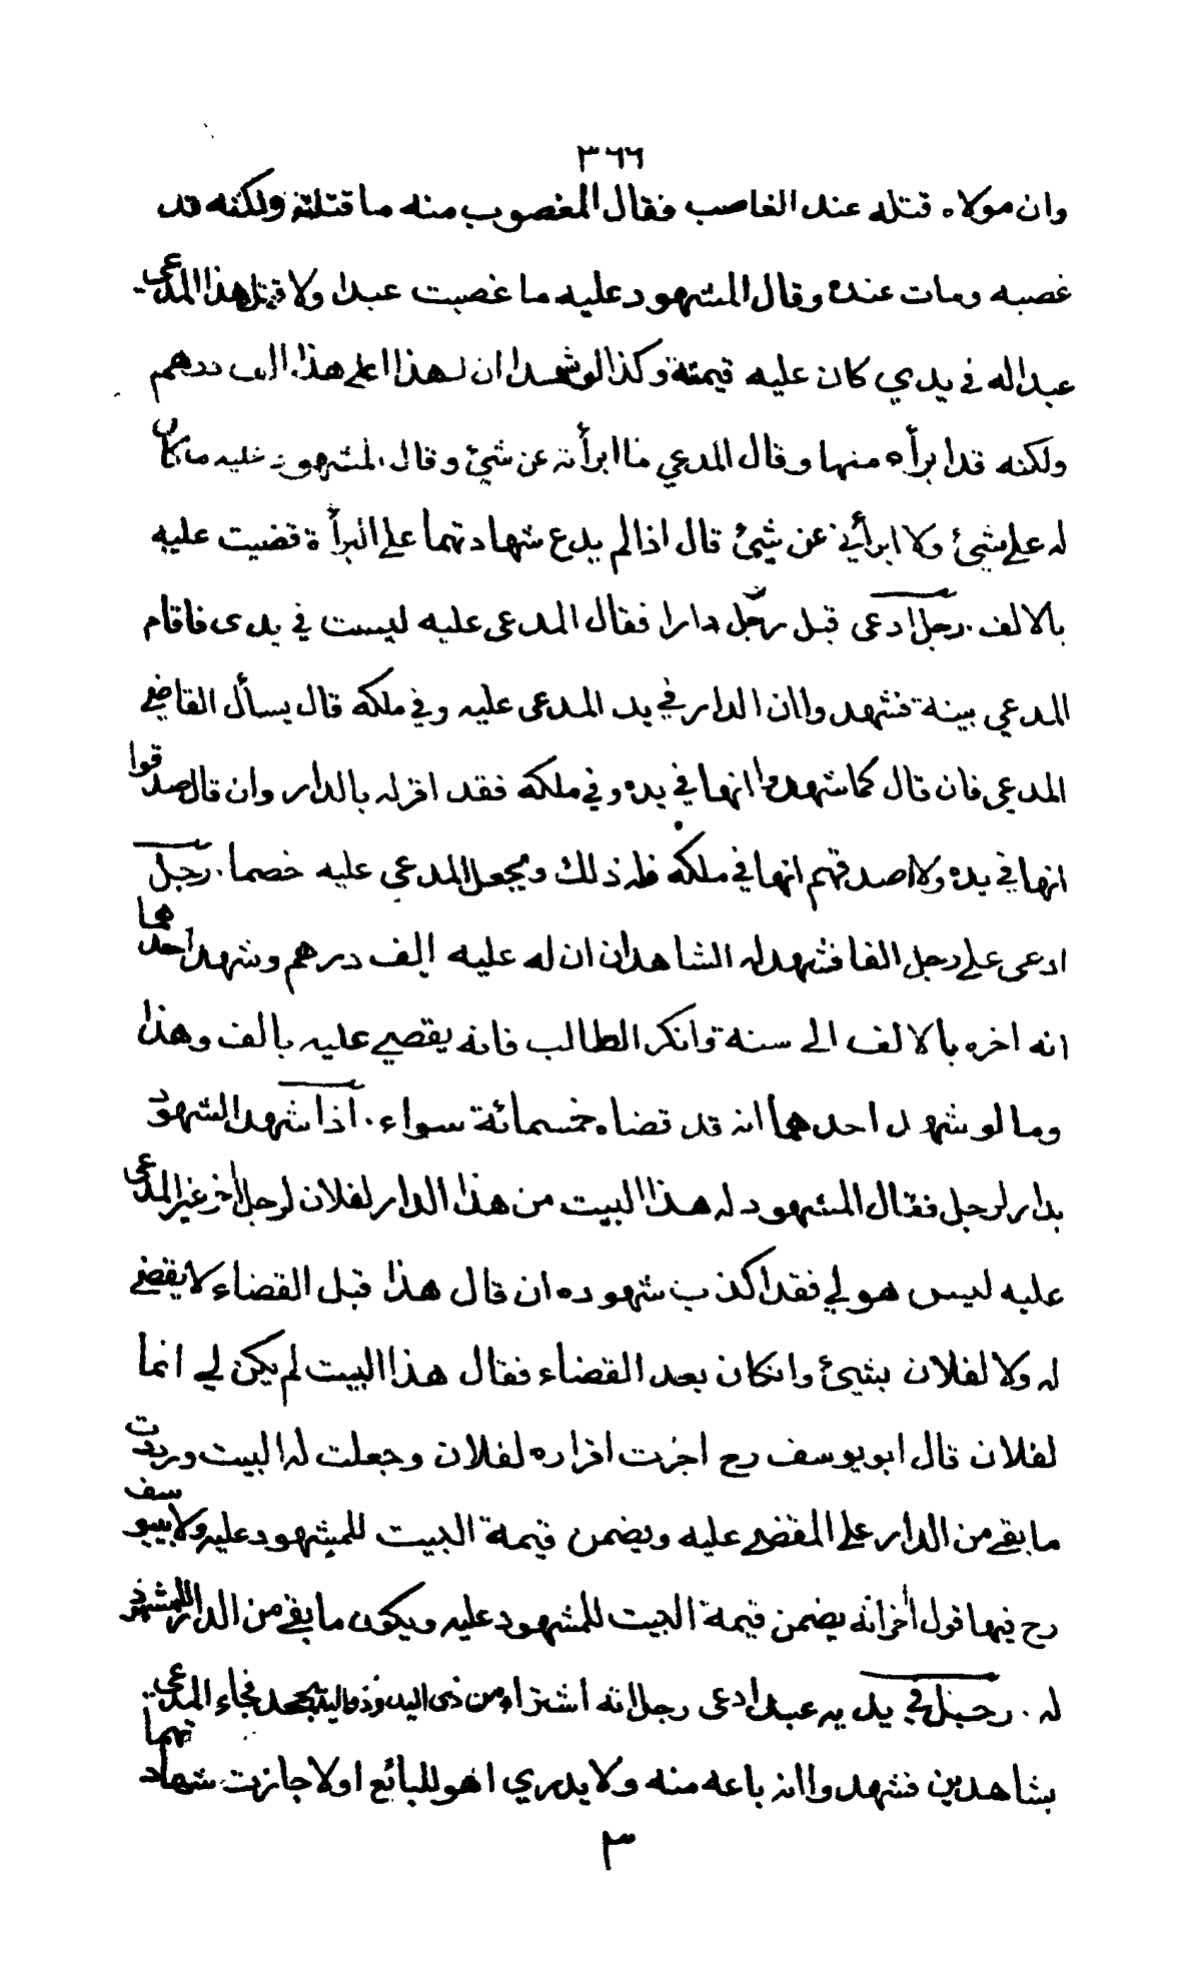 ٣٦٦
وان مولاه قتله عند الغاصب فقال المغصوب منه ما قتلته ولكنه قد
غصبه ومات عنده وقال المشهود عليه ما غصبت عبدا ولا قتل هذا المدعي
عبدا له في يدي كان عليه قيمته وكذا لو شهدا ان لهذا على هذا الف درهم
ولكنه قد ابرأه منها وقال المدعي ما ابرأته عن شيئ وقال المشهود عليه ما كان
له علي شيئ ولا ابرأني عن شيئ قال اذا لم يدع شهادتهما على البرأة قضيت عليه
بالالف . رجل ادعى قبل رجل دارا فقال المدعى عليه ليست في يدى فاقام
المدعي بينة فشهدوا ان الدار في يد المدعى عليه وفي ملكه قال يسأل القاضي
المدعي فان قال كما شهدوا انها في يده وفي ملكه فقد اقر له بالدار وان قال صدقوا
انها في يده ولا اصدقهم انها في ملكه فله ذلك ويجعل المدعي عليه خصما . رجل
ادعى على رجل الفا فشهد له الشاهدان ان له عليه الف درهم وشهد احدهما
انه اخره بالالف الى سنة وانكر الطالب فانه يقضي عليه بالف وهذا
وما لو شهد احدهما انه قد قضاه خمسمائة سواء . اذا شهد الشهود
بدار لرجل فقال المشهود له هذا البيت من هذا الدار لفلان لرجل اخر غير المدعى
عليه ليس هو لي فقد اكذب شهوده ان قال هذا قبل القضاء لا يقضي
له ولا لفلان بشيئ وانكان بعد القضاء فقال هذا البيت لم يكن لي انما
لفلان قال ابو يوسف رح اجزت اقراره لفلان وجعلت له البيت ورددت
ما بقي من الدار على المقضي عليه ويضمن قيمة البيت للمشهود عليه ولابي يوسف
رح فيها قول اخر انه يضمن قيمة البيت للمشهود عليه ويكون ما بقي من الدار للمشهود
له . رجل في يديه عبد ادعى رجل انه اشتراه من ذى اليد وذو اليد يجحد فجاء المدعي
بشاهدين فشهدوا انه باعه منه ولا يدري اهو للبائع او لا جازت شهادتهما
٣